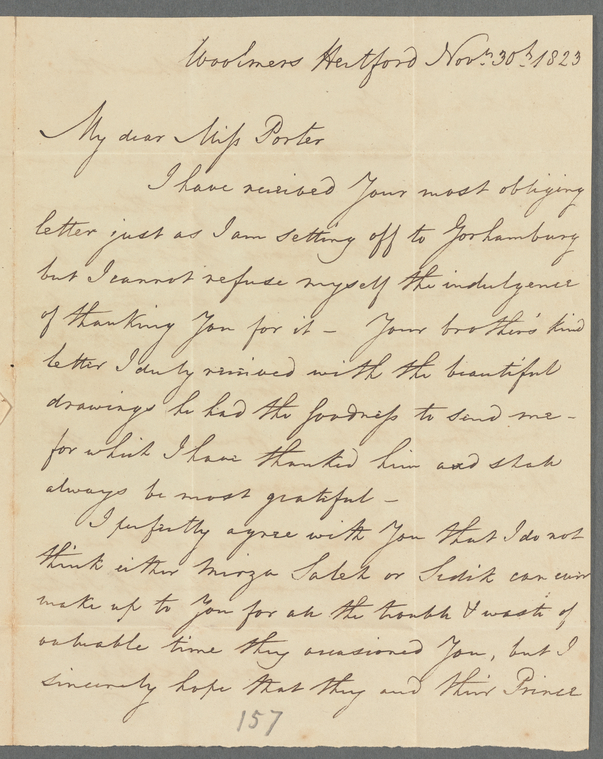 Woolmers Hertford Novr. 30th. 1823
My dear Miss Porter
I have received Your most obliging
letter just as I am setting off to Gorhambury
but I cannot refuse myself the indulgence
of thanking You for it – Your brother's kind
letter I duly received with the beautiful
drawings he had the goodness to send me –
for which I have thanked him and shall
always be most grateful –
I perfectly agree with You that I do not
think either Mirza Saleh or Sedik can ever
make up to You for all the trouble & waste of
valuable time they occasioned You, but I
sincerely hope that they and their Prince
157